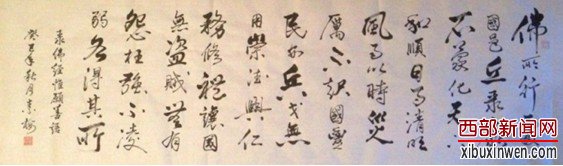 佛所行
國邑丘聚
不蒙化天
和順日月清明
風雨以時災
厲不起國豐
民安兵戈無
用崇德興仁
務修禮讓國
無盜賊無有
怨枉強不凌
弱各得其所
录佛經惟願善語
癸巳年秋月
西部新闻网
xibuxinwen.com